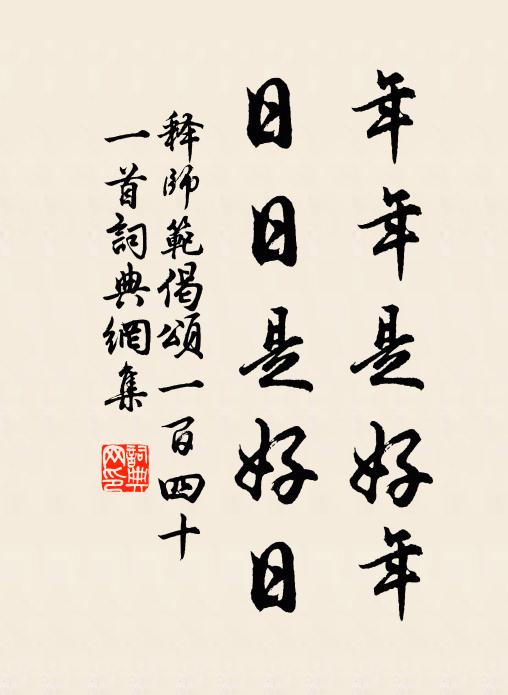 年年是好年
日日是好日
释師範偈頌一百四十
一首詞典網集
詞典
网印